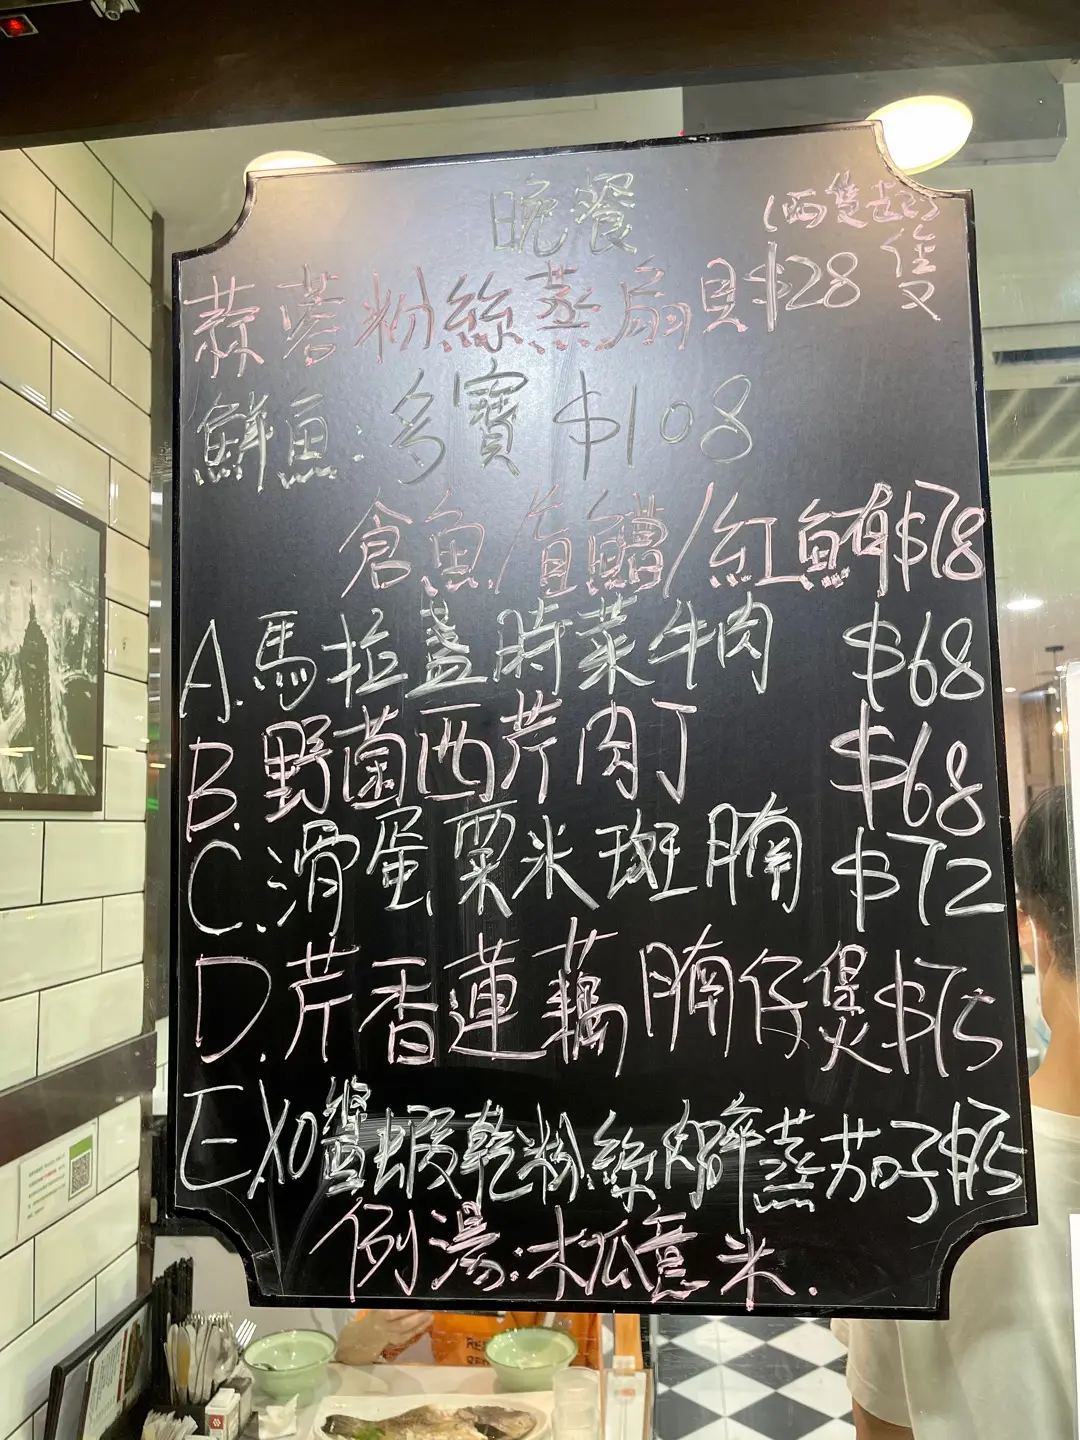 晚餐
(兩隻起)
蒜蓉粉絲蒸扇貝$28隻
鮮魚:多寶$108
倉魚/盲鰽/紅鮋$78
A.馬拉盞時菜牛肉 $68
B.野菌西芹肉丁 $68
C.滑蛋粟米斑腩 $72
D.芹香蓮藕腩仔煲$75
E XO醬蝦乾粉絲肉碎蒸茄子$75
例湯:木瓜薏米.